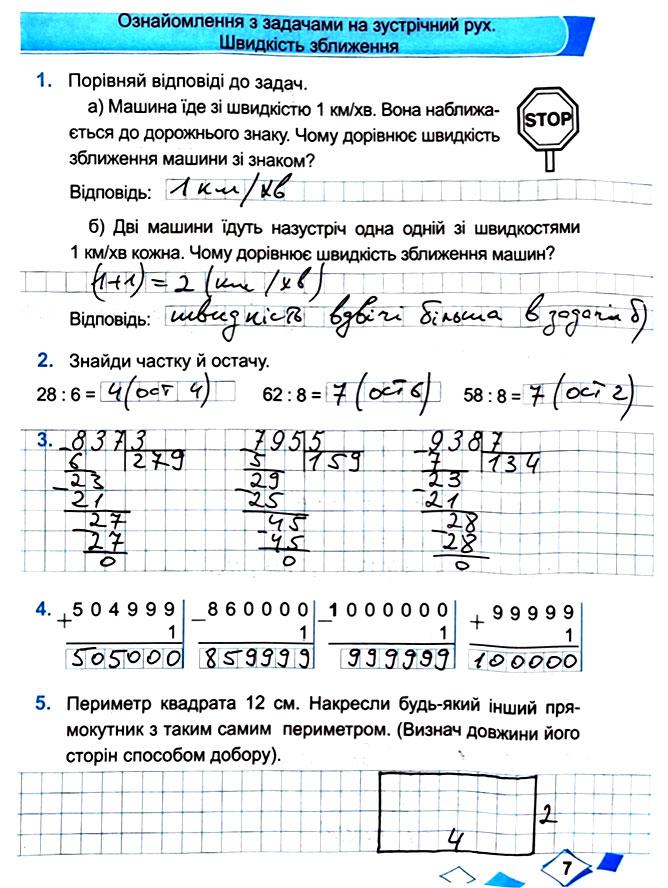 Ознайомлення з задачами на зустрічний рух.
Швидкість зближення
1. Порівняй відповіді до задач.
а) Машина їде зі швидкістю 1 км/хв. Вона наближа-
ється до дорожнього знаку. Чому дорівнює швидкість
зближення машини зі знаком?
STOP
Відповідь: 1 км/хв
б) Дві машини їдуть назустріч одна одній зі швидкостями
1 км/хв кожна. Чому дорівнює швидкість зближення машин?
(1+1) = 2 (км/хв)
Відповідь: швидкість вдвічі більша в задачі б)
2. Знайди частку й остачу.
28 : 6 = 4 (ост 4) 62 : 8 = 7 (ост 6) 58 : 8 = 7 (ост 2)
3. 8373 7955 9387
6 279 5 159 7 134
- 23 - 29 - 23
21 25 21
- 27 - 45 - 28
27 45 28
0 0 0
4. + 504999 - 860000 - 1000000 + 99999
1 1 1 1
505000 859999 999999 100000
5. Периметр квадрата 12 см. Накресли будь-який інший пря-
мокутник з таким самим периметром. (Визнач довжини його
сторін способом добору).
2
4
7